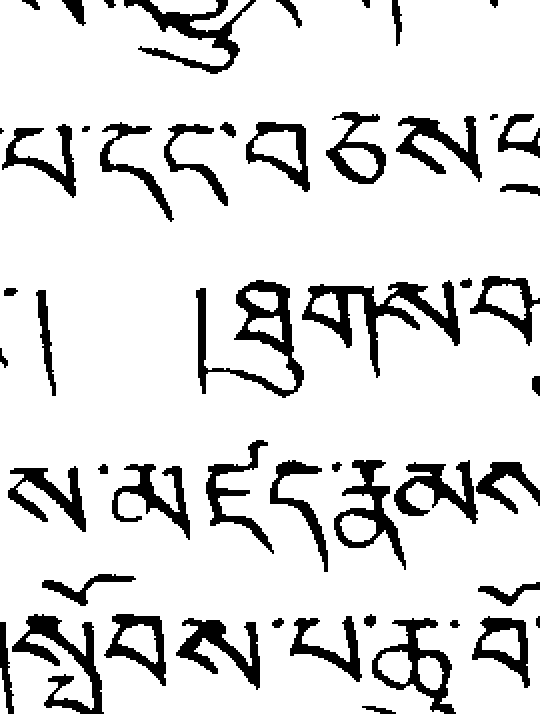 པ་དང་བཅས་
། །ཐུགས་
ས་མཛད་རྣམས
།སྤོབས་པ་ཆུ་བོ